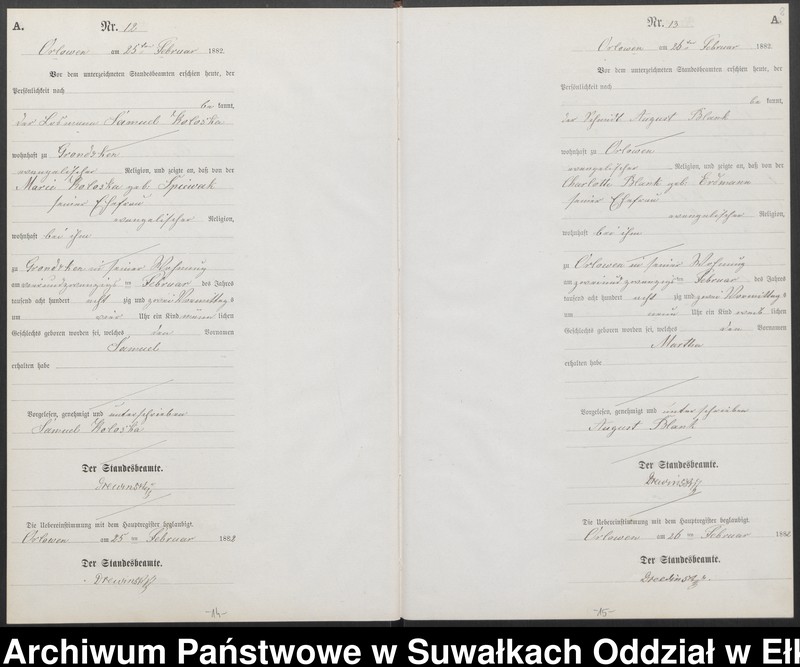 A.
Nr. 12
Orlowen am 25ten Februar 1882.
Vor dem unterzeichneten Standesbeamten erschien heute, der
Persönlichkeit nach
be kannt,
der Losmann Samuel Koloska
wohnhaft zu Grondzken
evangelischer Religion, und zeigte an, daß von der
Marie Koloska geb Spiewak
seiner Ehefrau
evangelischer Religion,
wohnhaft bei ihm
zu Grondzken in seiner Wohnung
am zwanzigsten Februar des Jahres
tausend acht hundert acht zig und zwei Vormittags
um vier Uhr ein Kind männ lichen
Geschlechts geboren worden sei, welches den Vornamen
Samuel
erhalten habe
Vorgelesen, genehmigt und unterschrieben
Samuel Koloska
Der Standesbeamte.
Drewinski
Die Uebereinstimmung mit dem Hauptregister beglaubigt.
Orlowen am 25 ten Februar 1882
Der Standesbeamte.
Drewinski
-14-
A.
Nr. 13
Orlowen am 26ten Februar 1882.
Vor dem unterzeichneten Standesbeamten erschien heute, der
Persönlichkeit nach
be kannt,
der Schmidt August Blank
wohnhaft zu Orlowen
evangelischer Religion, und zeigte an, daß von der
Charlotte Blank geb Erdmann
seiner Ehefrau
evangelischer Religion,
wohnhaft bei ihm
zu Orlowen in seiner Wohnung
am zweiundzwanzigsten Februar des Jahres
tausend acht hundert acht zig und zwei Vormittags
um neun Uhr ein Kind weib lichen
Geschlechts geboren worden sei, welches den Vornamen
Martha
erhalten habe
Vorgelesen, genehmigt und unterschrieben
August Blank
Der Standesbeamte.
Drewinski
Die Uebereinstimmung mit dem Hauptregister beglaubigt.
Orlowen am 26 ten Februar 1882.
Der Standesbeamte.
Drewinski
-15-
Archiwum Państwowe w Suwałkach Oddział w Eł